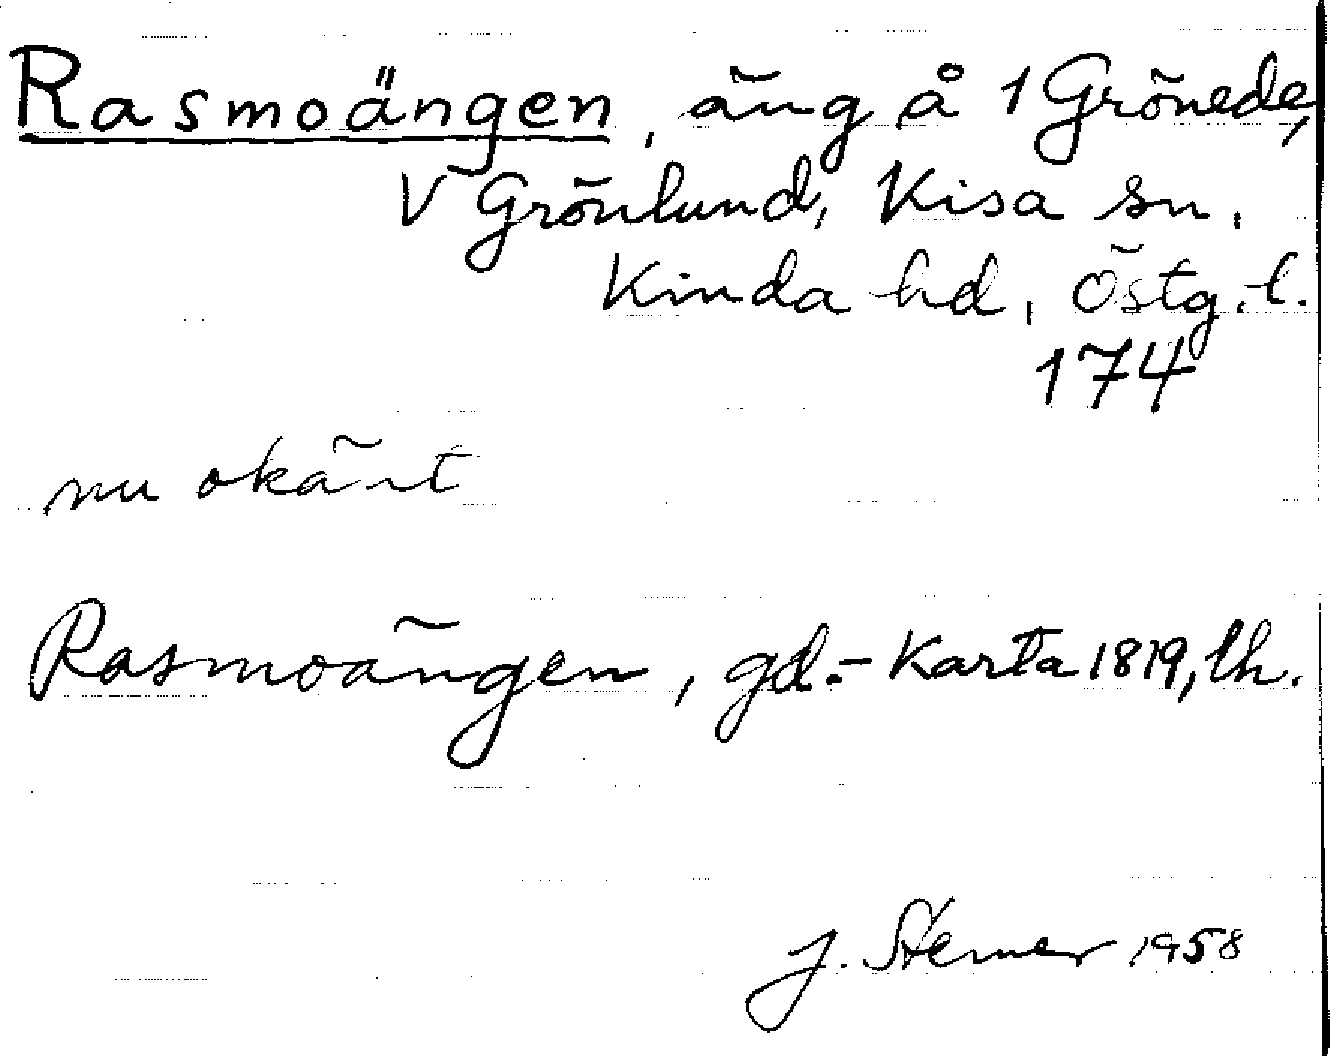 Rasmoängen, äng å 1 Grönede,
V Grönlund, Kisa sn,
Kinda hd, Östg. l.
174
nu okänt
Rasmoängen, gd.- Karta 1819, lh.
J. Sterner 1958